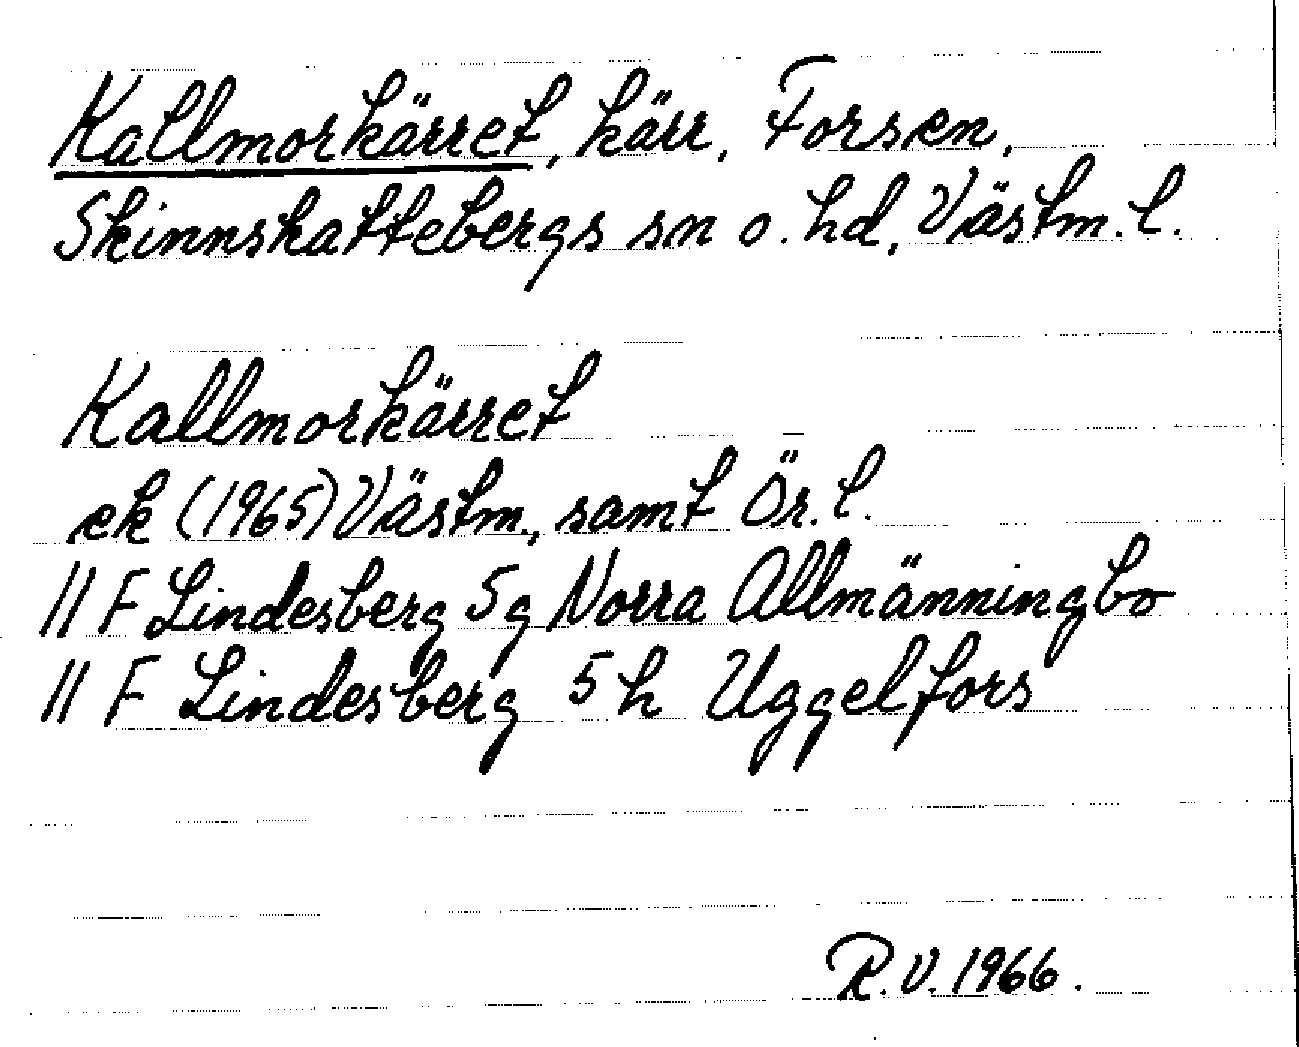 Kallmorkärret, kärr, Forsen,
Skinnskattebergs sn o. hd, Västm. l.
Kallmorkärret
ek (1965) Västm., samt Ör. l.
11 F Lindesberg 5g Norra Allmänningbo
11 F Lindesberg 5h Uggelfors
R.V. 1966.